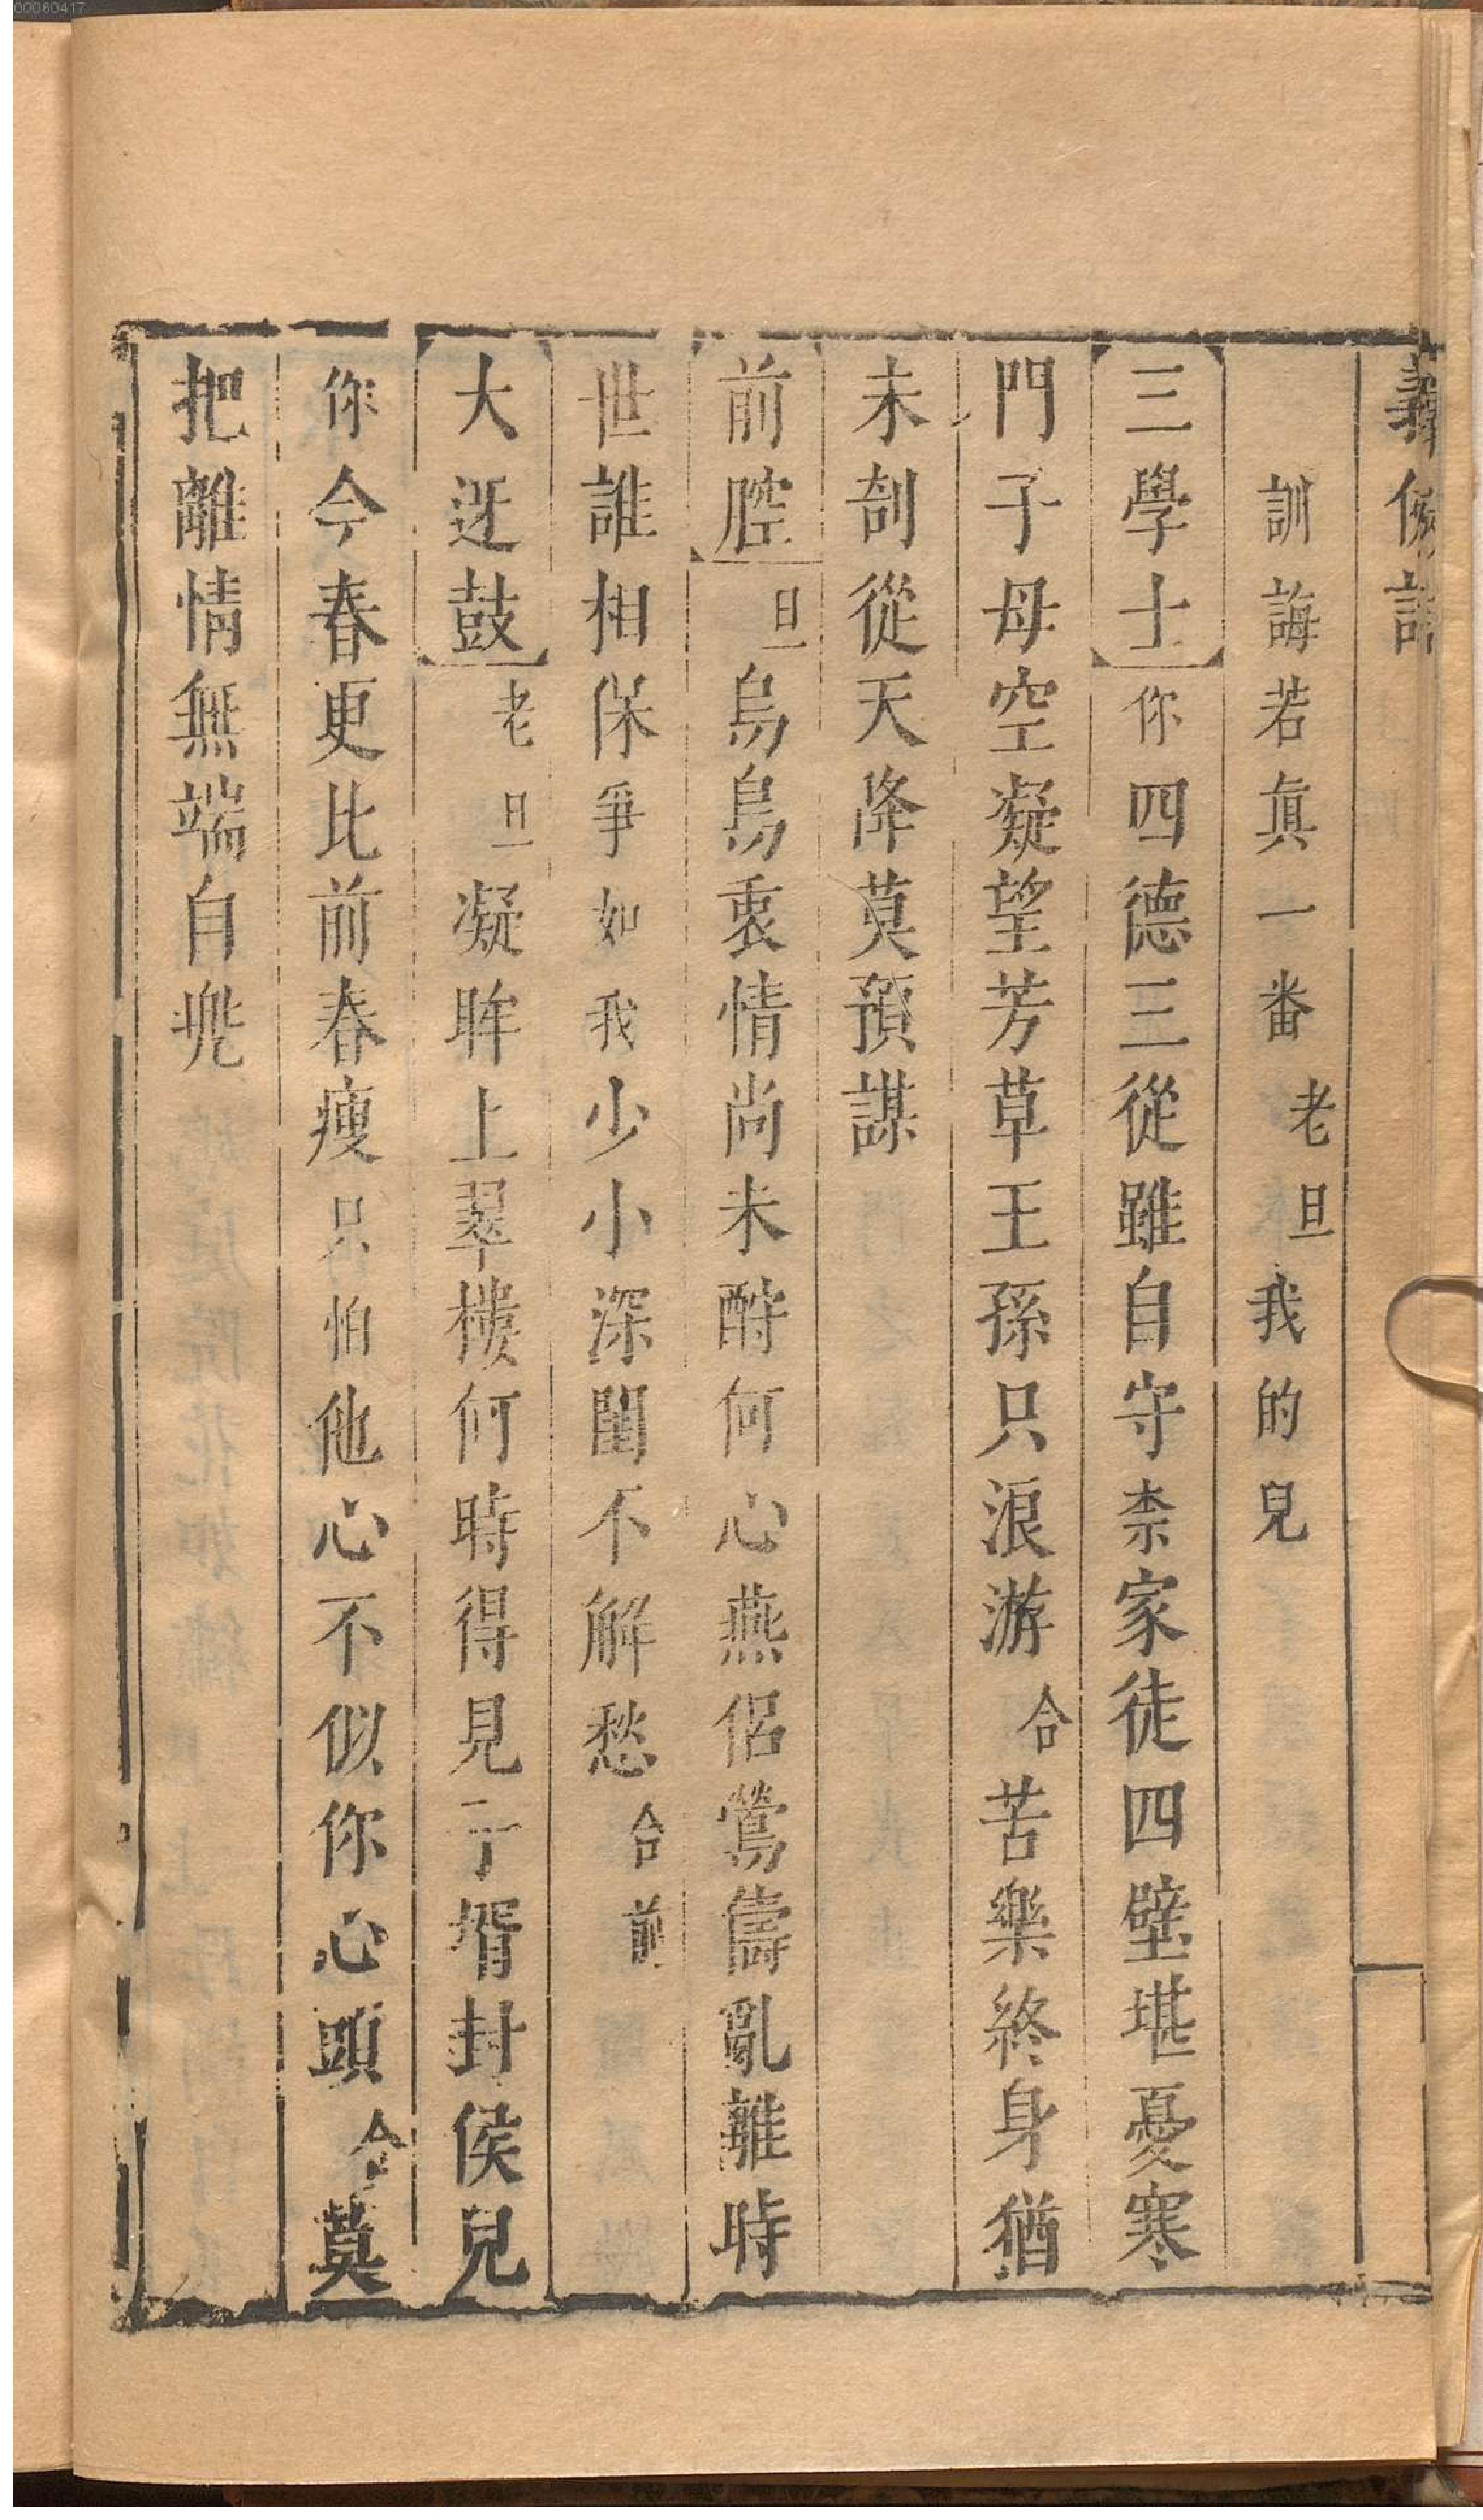 義俠記
訓誨若真一番老旦我的兒
三學士你四德三從雖自守柰家徒四壁堪憂寒
門子母空凝望芳草王孫只浪游合苦樂終身猶
未剖從天降莫預謀
前腔旦烏鳥衷情尚未酧何心燕侶鶯儔亂離時
世誰相保爭如我少小深閨不解愁合前
大迓鼓老旦凝眸上翠樓何時得見丁壻封侯兒
你今春更比前春瘦只怕他心不似你心頭合莫
把離情無端自兜
00060417